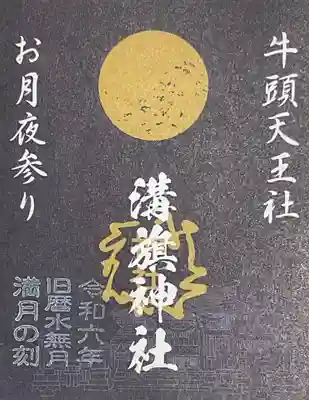 牛頭天王社
お月夜参り
溝旗神社
令和六年
旧暦水無月
満月の刻